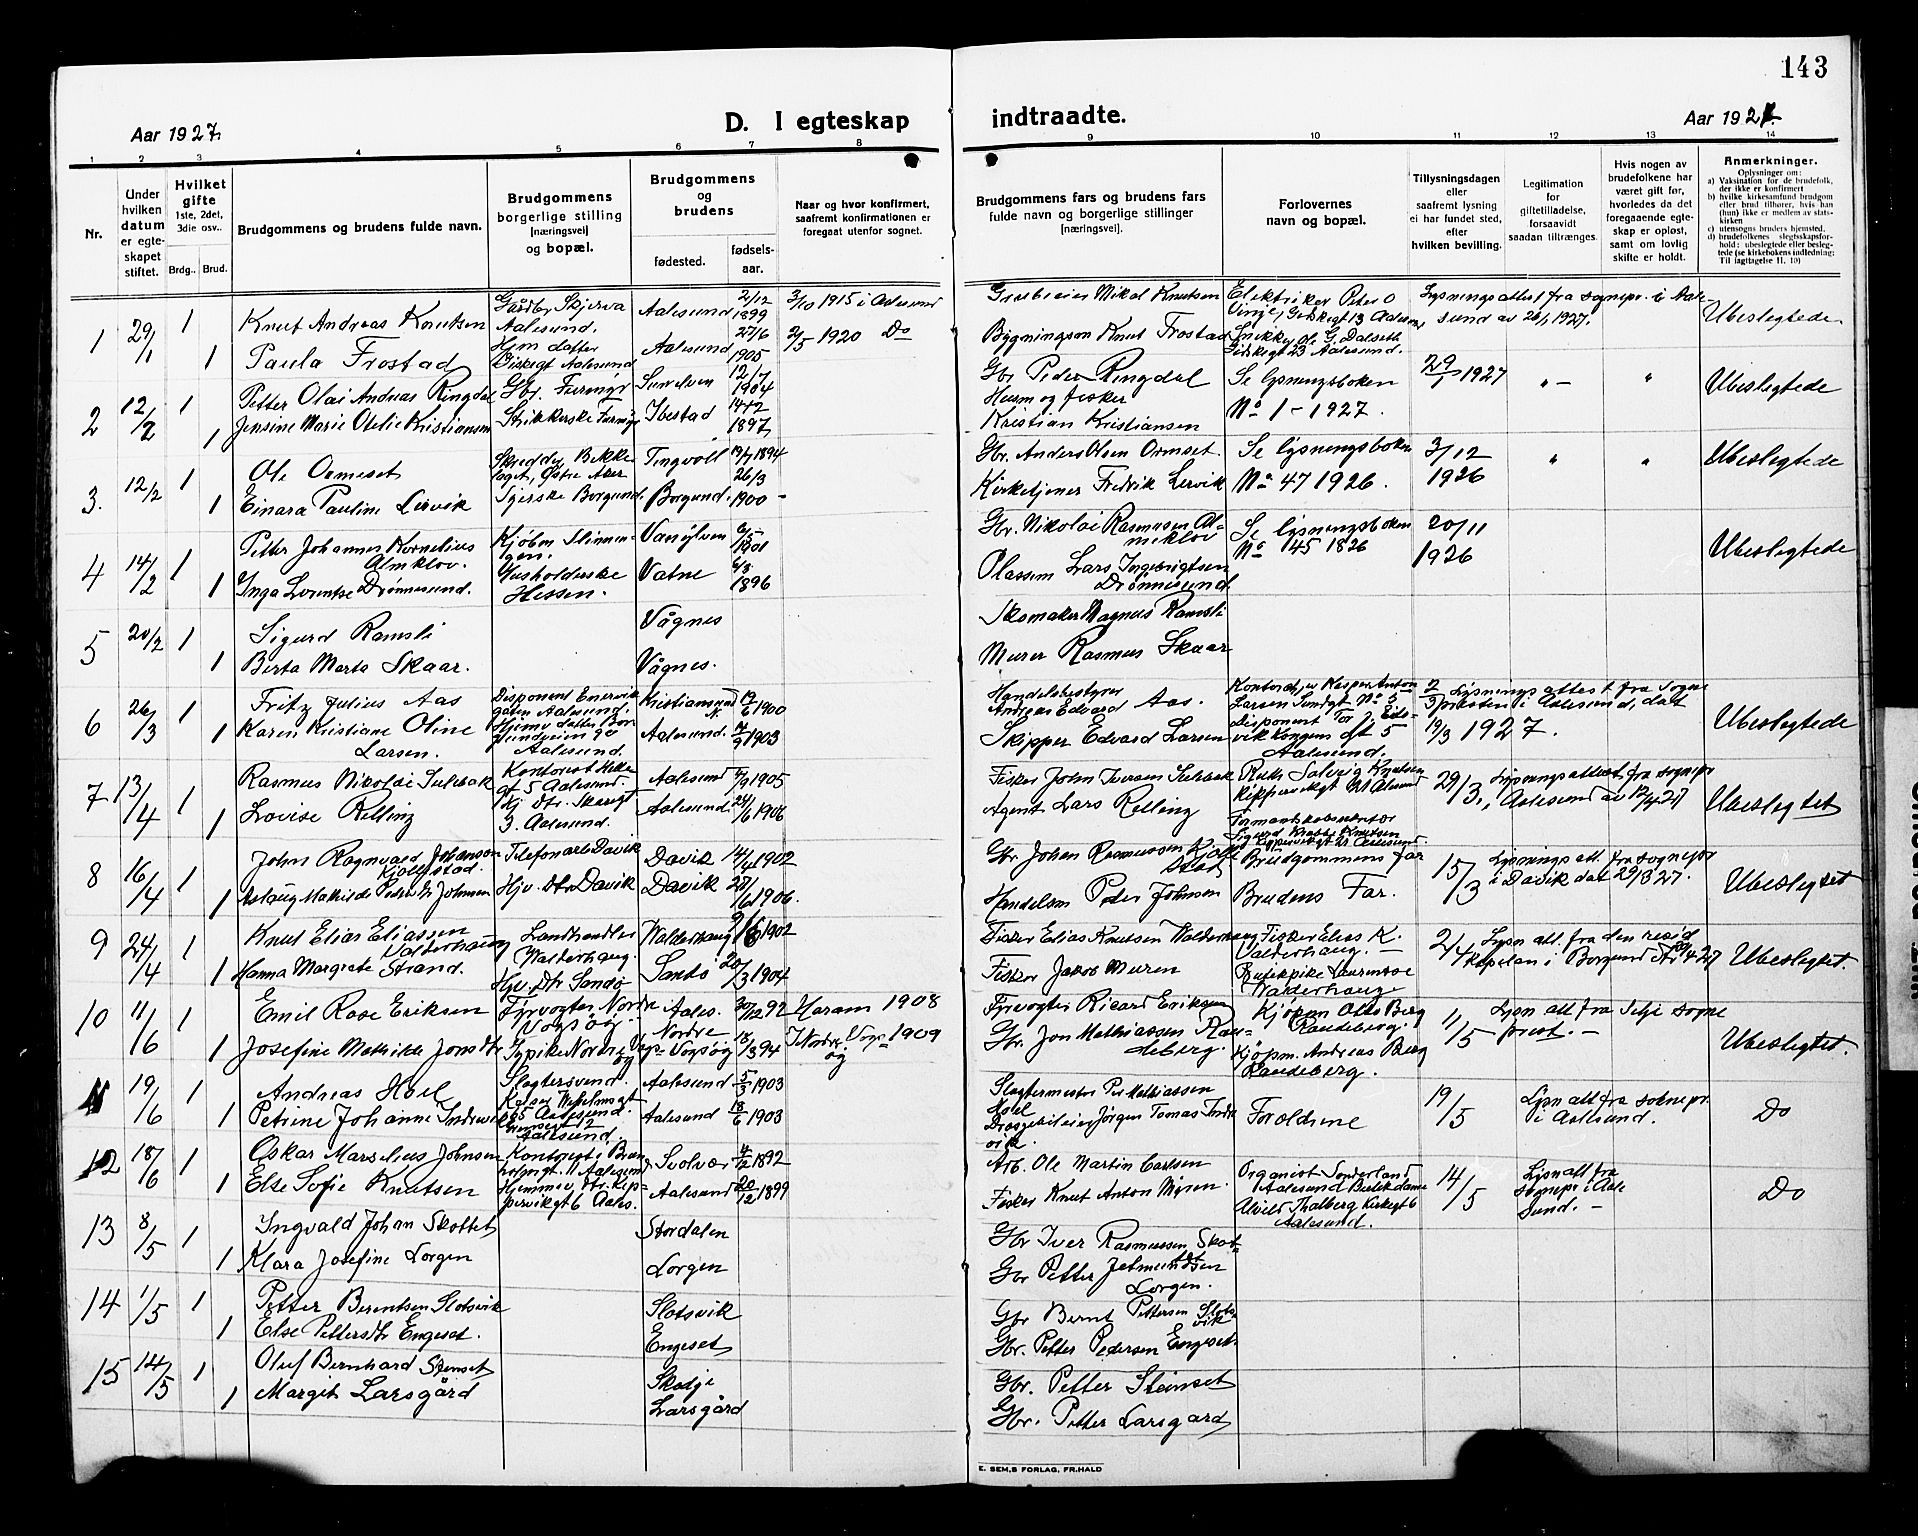 143
Aar 1927.
D. I egteskap
indtraadte.
Aar 1927.
1 2 3 4 5 6 7 8 9 10 11 12 13 14
Nr.
Under
hvilken
datum
er egte-
skapet
stiftet.
Hvilket
gifte
1ste, 2det,
3die osv..
Brdg.. Brud.
Brudgommens og brudens fulde navn.
Brudgommens
borgerlige stilling
[næringsvei]
og bopæl.
Brudgommens
og
brudens
fødested.
fødsels-
aar.
Naar og hvor konfirmert,
saafremt konfirmationen er
foregaat utenfor sognet.
Brudgommens fars og brudens fars
fulde navn og borgerlige stillinger
[næringsvei].
Forlovernes
navn og bopæl.
Tillysningsdagen
eller
saafremt lysning
ei har fundet sted,
efter
hvilken bevilling.
Legitimation
for
giftetilladelse,
forsaavidt
saadan tiltrænges.
Hvis nogen av
brudefolkene har
været gift før,
hvorledes da det
foregaaende egte-
skap er opløst,
samt om lovlig
skifte er holdt.
Anmerkninger.
Oplysninger om:
a) Vaksination for de brudefolk,
der ikke er konfirmert
b) hvilke kirkesamfund brudgom
eller brud tilhører, hvis han
(hun) ikke er medlem av stats-
kirken
c) utensogns bruders hjemsted.
d) brudefolkenes slegtsskapsfor-
hold: ubeslegtede eller besleg-
tede (se kirkebokens indledning:
Til iagttagelse II, 10)
1 29/1 1 Knut Andreas Knutsen Aalesund. Aalesund 2/12 1899 3/10 1915 i Aalesund
Mikal Knutsen Elektriker Peter O Vinje, Lysningsattest fra sognepr. i Aale-
sund av 26/1 1927. Ubeslegtede
1 Paula Frostad Hjm datter Aalesund Aalesund 27/6 1905 2/5 1920 Do
Bygningsm Knut Frostad Snikker ol. G. Dalseth Aalesund.
2 12/2 1 Petter Olai Andreas Ringdal Gbr. Sunelven 12/7 1904
Gbr Peder Ringdal Se lysningsboken 29/1 1927 " - " Ubeslegtede
1 Jensine Marie Otelie Kristiansen Strikkerske Ibestad 1897
Husm og fisker
Kristian Kristiansen No 1 - 1927.
3. 12/2 1 Ole Ormset Skredder Bekke-
laget, Østre Aker Tingvoll 1894
Gbr. Anders Olsen Ormset. Se lysningsboken 3/12 " " Ubeslegtede
1 Einara Pauline Lervik Syerske Borgund. Borgund. 26/3 1900 -
Kirketjener Fredrik Lervik No 47 1926. 1926
4 14/2 1 Petter Johannes Kornelius
Almklov. Kjøbm Vanylven 6/5 1901
Gbr. Nikolai Rasmusen Al-
mklov Se lysningsboken 20/11 Ubeslegtede
No 45 1826 1926
1 Inga Lorentse Drønnesund. Husholderske
Hessen. Vatne 6/3 1896
Plassem Lars Ingebrigtsen
Drønnesund
5 20/2 1 Sigurd Ramsli Vågnes
Skomaker Magnus Ramsli
1 Berta Marta Skaar. Vågnes.
Murer Rasmus Skaar
6 26/3 1 Fritz Julius Aas Disponent
gaten Aalesund. Kristiansund N. 19/6 1900
Handelsbestyrer
Andreas Edvard Aas. Kontorchef Kasper Anton
Larsen 2/3 Lysningsattest fra sogne
præsten i Aalesund, dat
19/3 1927. Ubeslegtede
1 Karen Kristiane Oline
Larsen. Hjemv datter
Aalesund. Aalesund. 7/9 1903
Skipper Edvard Larsen Disponent
Aalesund.
7 13/4 1 Rasmus Nikolai Sulebak Kontorist
gt 5 Aalesund. Aalesund 1905
Fisker John Iversen Sulebak Ruth Solveig Knutsen
Aalesund 29/3. Lysningsattest fra sognepr
i Aalesund av 12/4 27 Ubeslegtet
1 Lovise Relling Hj dtr.
3. Aalesund. Aalesund. 1906
Agent Lars Relling Formandskabssekretær
Sigurd Knutsen
8 16/4 1 John Ragnvald Johanson
Telefonarb Davik Davik 14/4 1902
Gbr Johan Rasmussen Brudgommens far 15/3 Lysningsatt. fra sognepr
i Davik dat 29/3 27. Ubeslegtet
1 Aslaug Mathilde Peders dtr Johnsen Hjv. Dtr Davik Davik 1906.
Handelsm Peder Johnsen Brudens Far.
9 24/4 1 Knut Elias Eliassen
Valderhaug Landhandler
Walderhaug. Walderhaug 1902
Fisker Elias Knutsen Walderhaug Fisker Elias K.
Valderhaug. 2/4 Lysn att. fra den resid
kapelan i Borgund 427 Ubeslegtet.
1 Hanna Margrete Strand. Hjv. Dtr Sandø Sandø 20/3 1904
Fisker Jakob Muren
Walderhaug
10 11/6 1 Emil Rose Eriksen Fyrvogter, Nordre
Vogsøy. Aales. 30/12 92 Haram 1908
Fyrvogter Ricard Eriksen Kjøpm Olts Berg
Raudeberg. 11/5 Lysn att fra Selje sogne
prest. - Ubeslegtet.
1 Josefine Mathilde Jonsdtr Nordre
Vogsøy 94 i Nordre Vogs-
øy 1909
Gbr. Jon Mathiassen Rau-
deberg. Kjøpm. Andreas Berg
Raudeberg.
11 19/6 1 Andreas Hoel Slagtersvend.
Aalesund 5/3 1903
Slagtermester Per Mathiassen
Hoel Foreldrene 19/5 Lysn att fra sognepr
i Aalesund. Do
1 Petrine Johanne Indrevik
Aalesund. Aalesund 18/6 1903
Drosjebileier Jørgen Tomas Indre
vik.
12 18/6 1 Oskar Marselius Johnsen Kontorist
Aalesund Svolvær 4/12 1892
Arb. Ole Martin Carlsen Organist Sønderland
Aalesund 14/5 Lysn att fra
sognepr i Aale
sund. - Do
1 Else Sofie Knutsen Hjemmev dtr. Kip-
pervikgt 6 Aales. Aalesund 20/12 1899
Fisker Knut Anton Myren.
Thalberg Kirkegt 6
Aalesund.
13 8/5 1 Ingvald Johan Skottet Stordalen
Gbr Iver Rasmussen Skot-
1 Klara Josefine Lorgen Lorgen
Gbr Petter Jetmundsen
Lorgen.
14 1/5 1 Petter Berentsen Slotsvik Slotsvik
Gbr Bernt Pettersen Slots
vik
1 Else Pettersdtr Engeset. Engeset
Gbr. Petter Pedersen Engeset.
15 14/5 1 Oluf Bernhard Stenset Skodje
Gbr. Petter Steinset
1 Margit Larsgård Larsgård
Gbr. Petter Larsgard
E. SEM.S FORLAG, FR.HALD